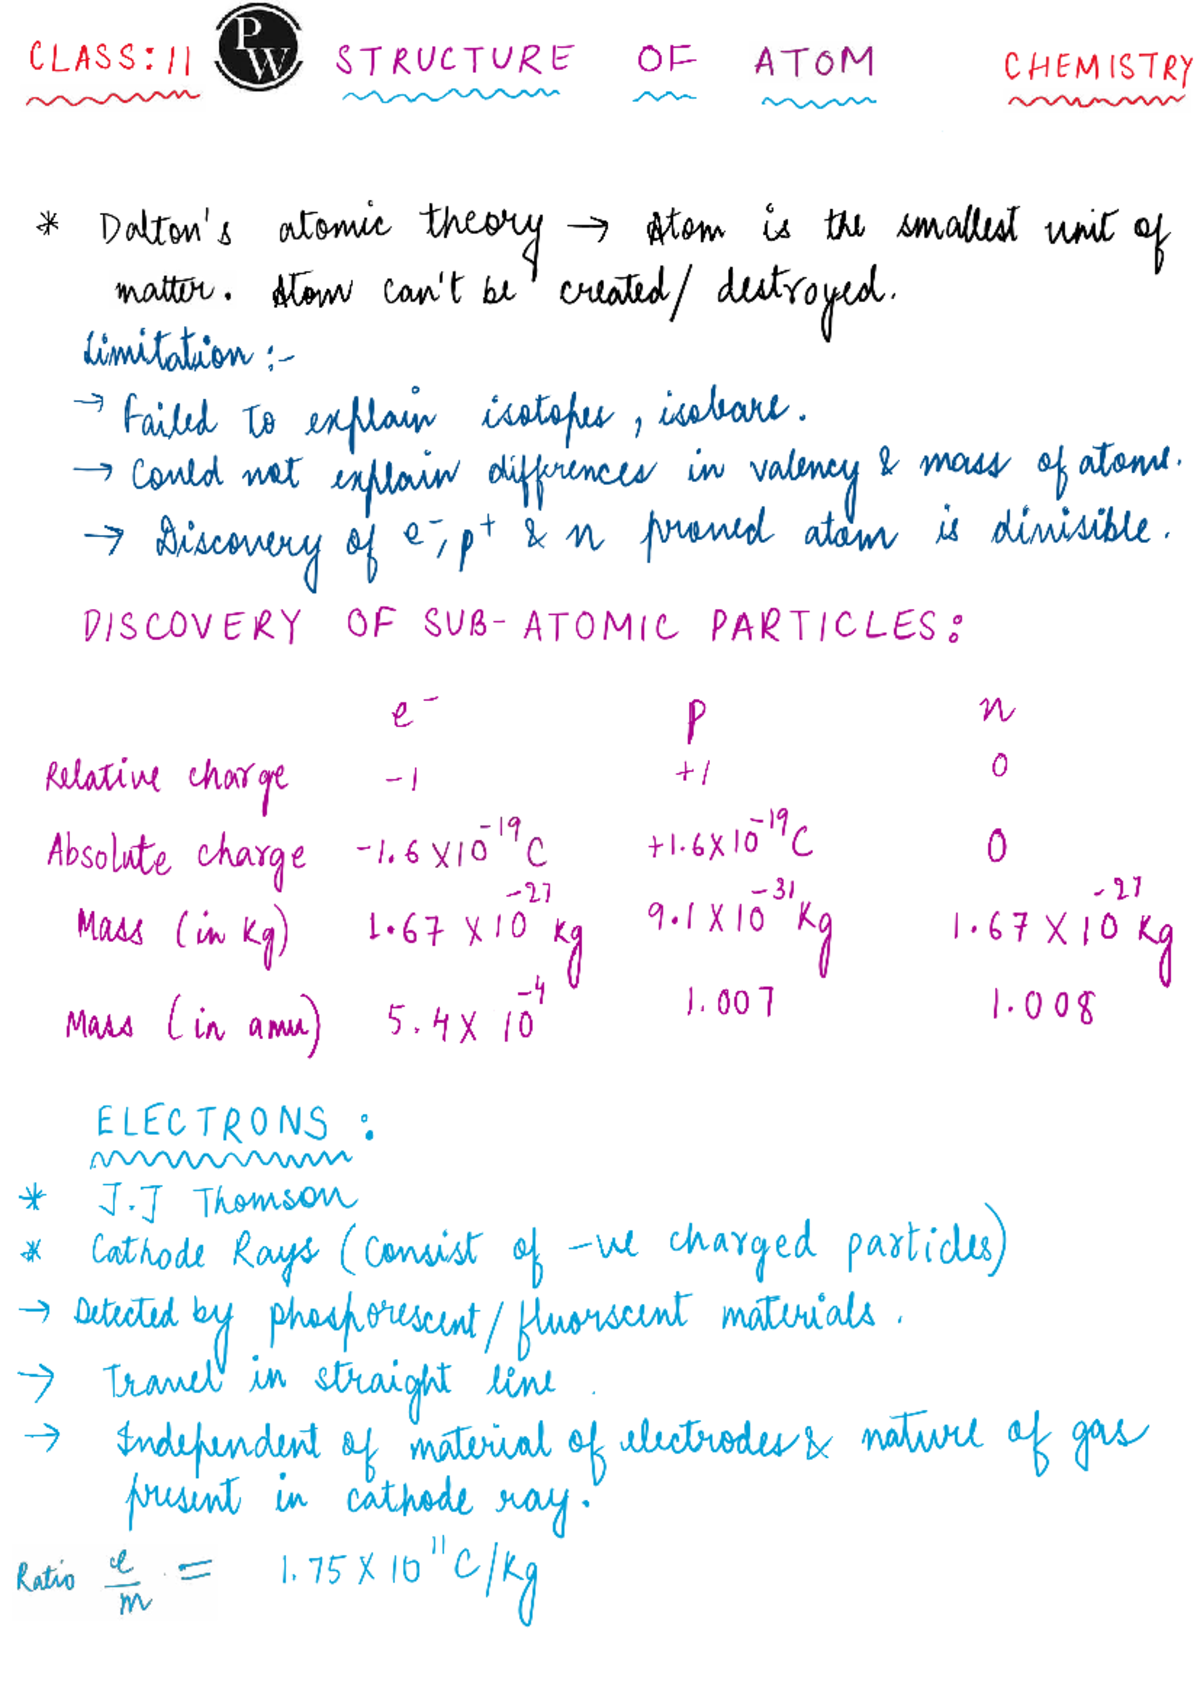 CLASS: 11 PW STRUCTURE OF ATOM CHEMISTRY
* Dalton's atomic theory → Atom is the smallest unit of
matter. Atom can't be created/ destroyed.
Limitation :-
→ Failed to explain isotopes, isobars.
→ Could not explain differences in valency & mass of atoms.
→ Discovery of e⁻, p⁺ & n proved atom is divisible.
DISCOVERY OF SUB-ATOMIC PARTICLES:
e⁻ p n
Relative charge -1 +1 0
Absolute charge -1.6 X10⁻¹⁹C +1.6X10⁻¹⁹C 0
Mass (in kg) 1.67 X10⁻²⁷ kg 9.1X10⁻³¹ kg 1.67 X10⁻²⁷ kg
Mass (in amu) 5.4X 10⁻⁴ 1.007 1.008
ELECTRONS :
* J.J Thomson
* Cathode Rays (Consist of -ve charged particles)
→ Detected by phosphorescent/fluorscent materials.
→ Travel in straight line.
→ Independent of material of electrodes & nature of gas
present in cathode ray.
Ratio e/m = 1.75X10¹¹C/kg